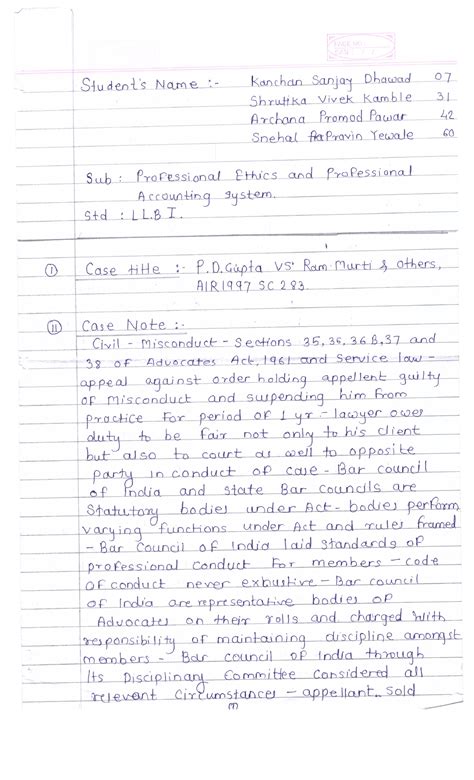 Student's Name :- Kanchan Sanjay Dhawad 07
Shrutika Vivek Kamble 31
Archana Promod Pawar 42
Snehal Pravin Yewale 60
Sub : Professional Ethics and Professional
Accounting system.
Std : LL.B I.
I Case title :- P.D.Gupta VS. Ram Murti & others,
AIR1997 SC 283.
II Case Note :-
Civil - Misconduct - Sections 35, 36, 36 B, 37 and
38 of Advocates Act, 1961 and Service law -
appeal against order holding appellent guilty
of misconduct and suspending him from
practice for period of 1 yr - lawyer owes
duty to be fair not only to his client
but also to court as well to opposite
party in conduct of case - Bar council
of India and state Bar councils are
Statutory bodies under Act - bodies perform
varying functions under Act and rules framed
- Bar Council of India laid standards of
professional conduct for members - code
of conduct never exbustive - Bar council
of India are representative bodies of
Advocates on their rolls and charged with
responsibility of maintaining discipline amongst
members - Bar council of India through
Its Disciplinary Committee considered all
relevent circumstances - appellant sold